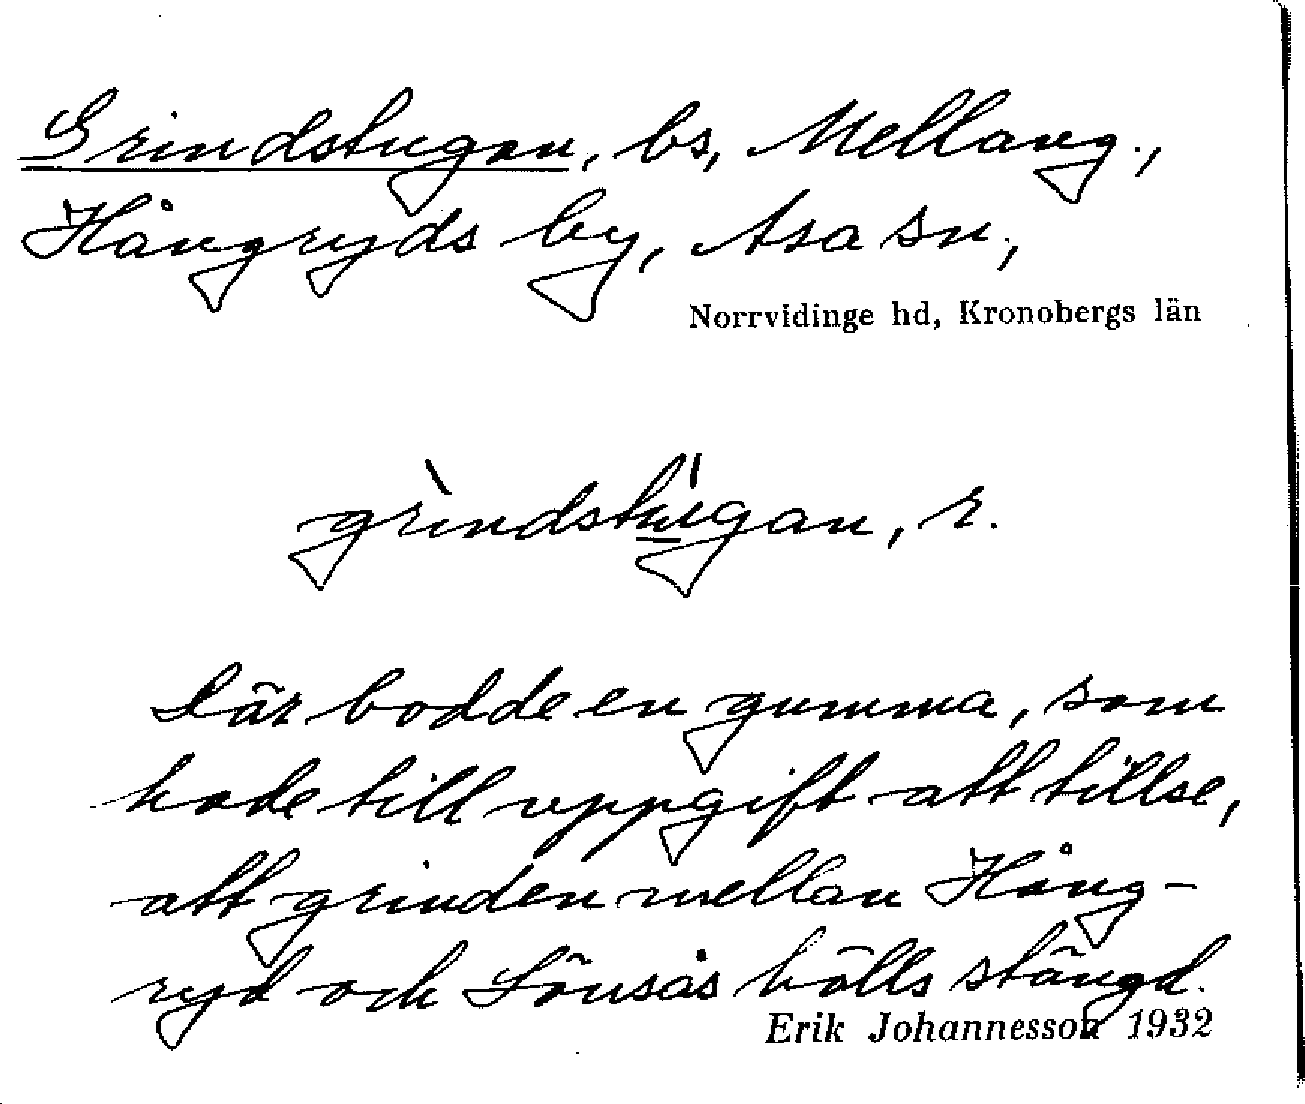 Grindstugan, bs, Mellang.,
Hångryds by, Asa sn,
Norrvidinge hd, Kronobergs län
grìndstúgan, r.
Där bodde en gumma, som
hade till uppgift att tillse,
att grinden mellan Hång-
ryd och Lönsås hölls stängd.
Erik Johannesson 1932